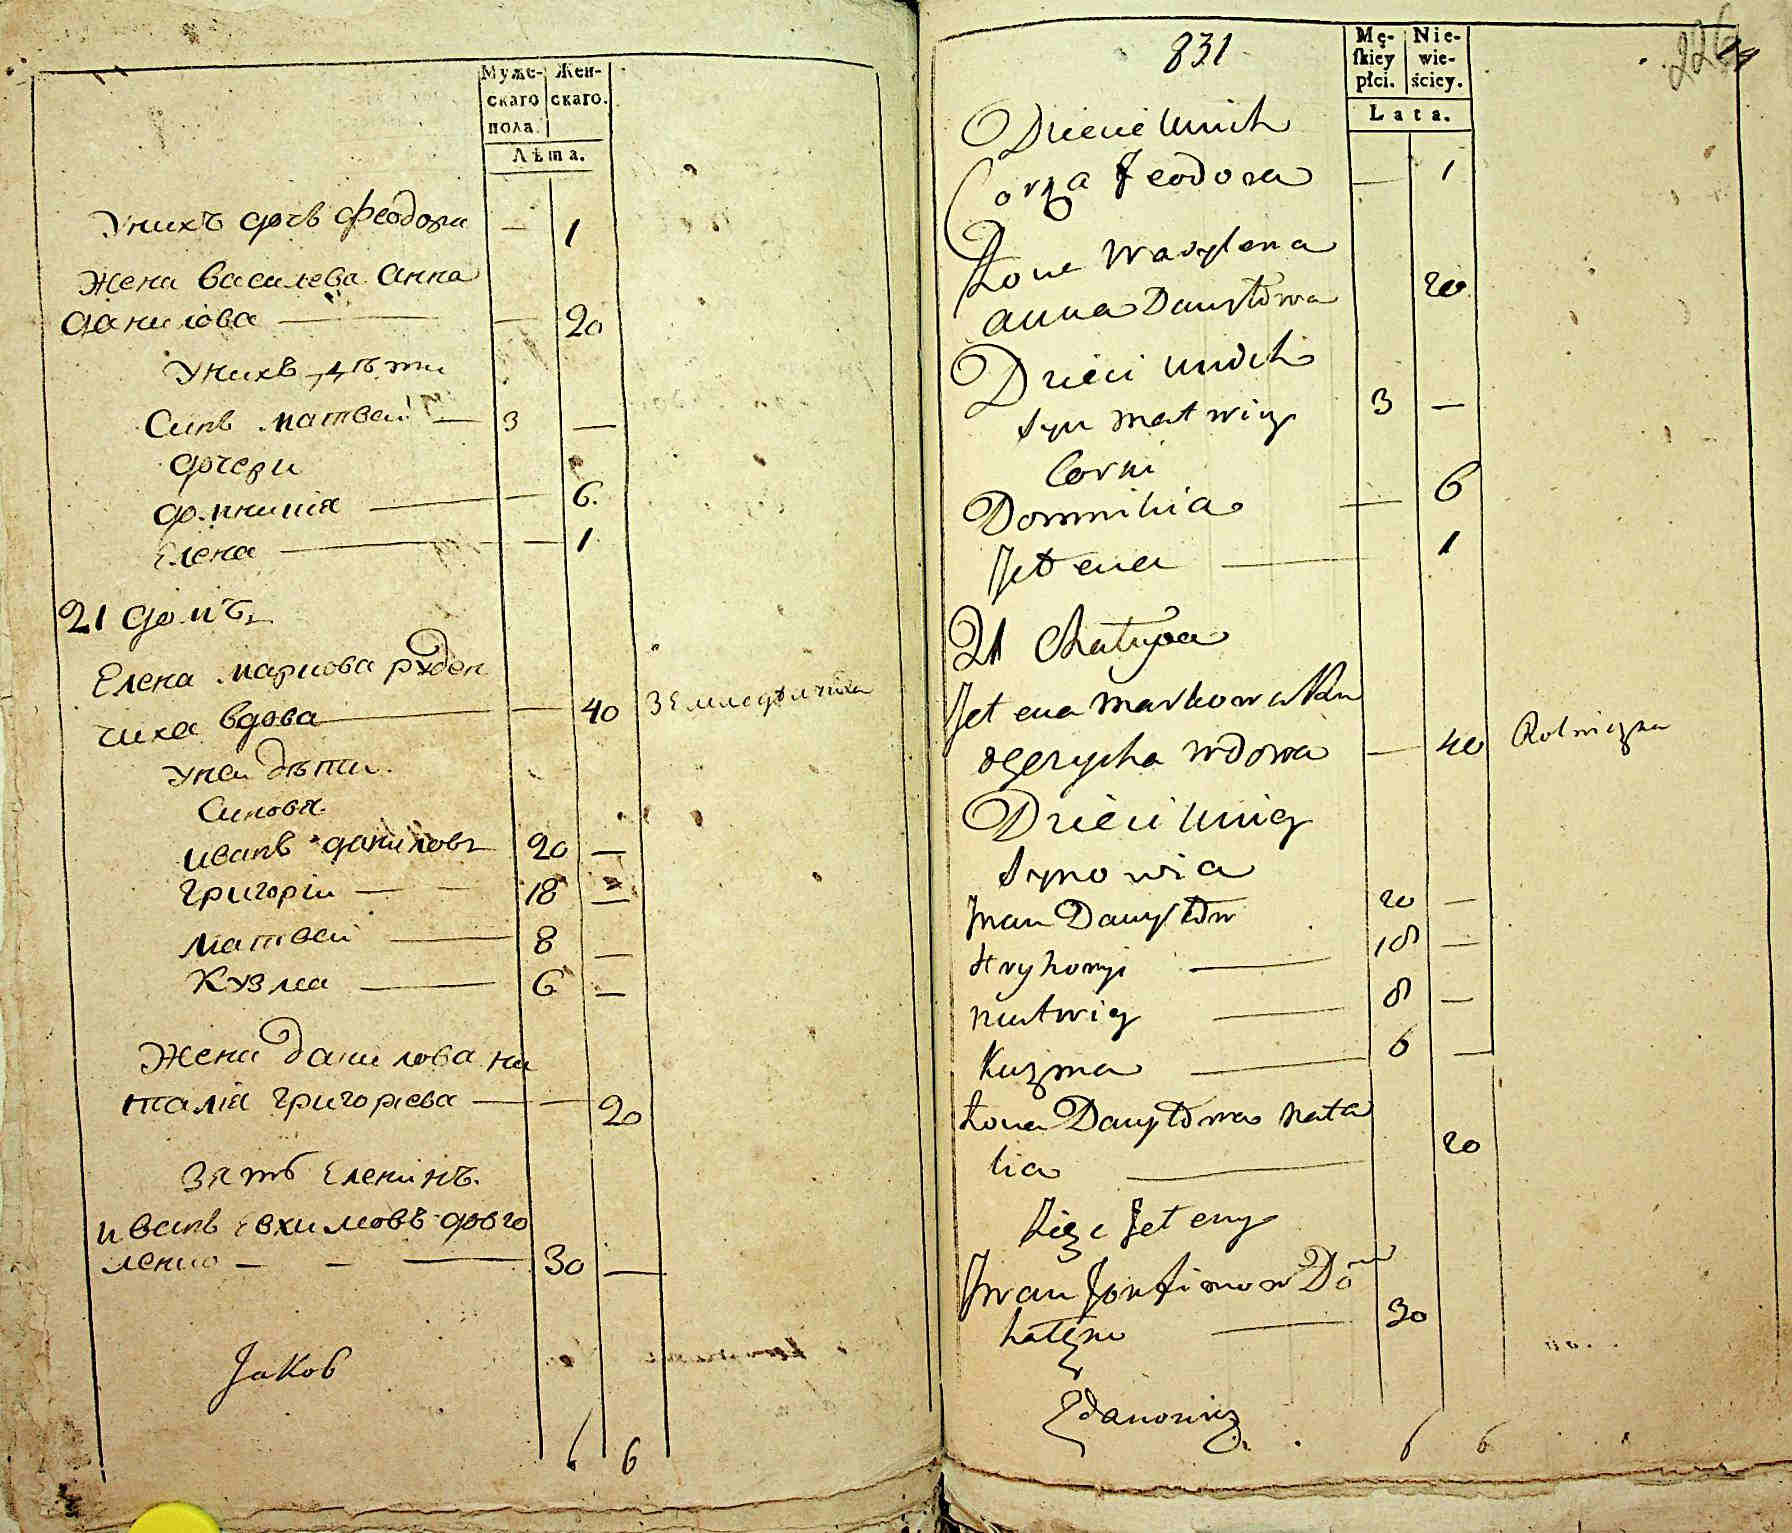 Муже-
скаго
пола.
Жен-
скаго.
Лѣта.
Унихъ дочь Феодора — 1
Жена василева Анна
данилова — — 20
Унихъ дѣти
Синъ матвей — 3 —
дочери
домникія — — 6.
Елена — — 1
21 домъ
Елена маркова руден
чиха вдова — — 40
Унеи дѣти.
Синовя.
иванъ даниловъ 20 —
григоріи — 18 —
матвеи — 8 —
Кузма — 6 —
Жена данилова на
талія григорієва — — 20
Зять Еленинъ.
иванъ Евхимовъ довго
ленко — — — 30 —
Jakob
6 6
831
226
Mę-
ſkiey
płci.
Nie-
wie-
ściey.
Lata.
Dziecie Unich
Corka Feodora — 1
Żona Wasylowa
Anna Danyłowa 20
Dzieci Unich
Syn Matwiy 3 —
Corki
Domnikia — 6
Jełena — 1
21 Chałupa
Jełena Markowa Ru
wdowa — 40 Rolniczka
Dzieci Uniey
Synowia
Iwan Danyłow 20 —
Hryhoryi — 18 —
Matwiy — 8 —
Kuzma — 6 —
Żona Danyłowa Nata
lia — 20
Zięć Jeleny
Iwan Dow
— 30
Zdanowicz
6 6